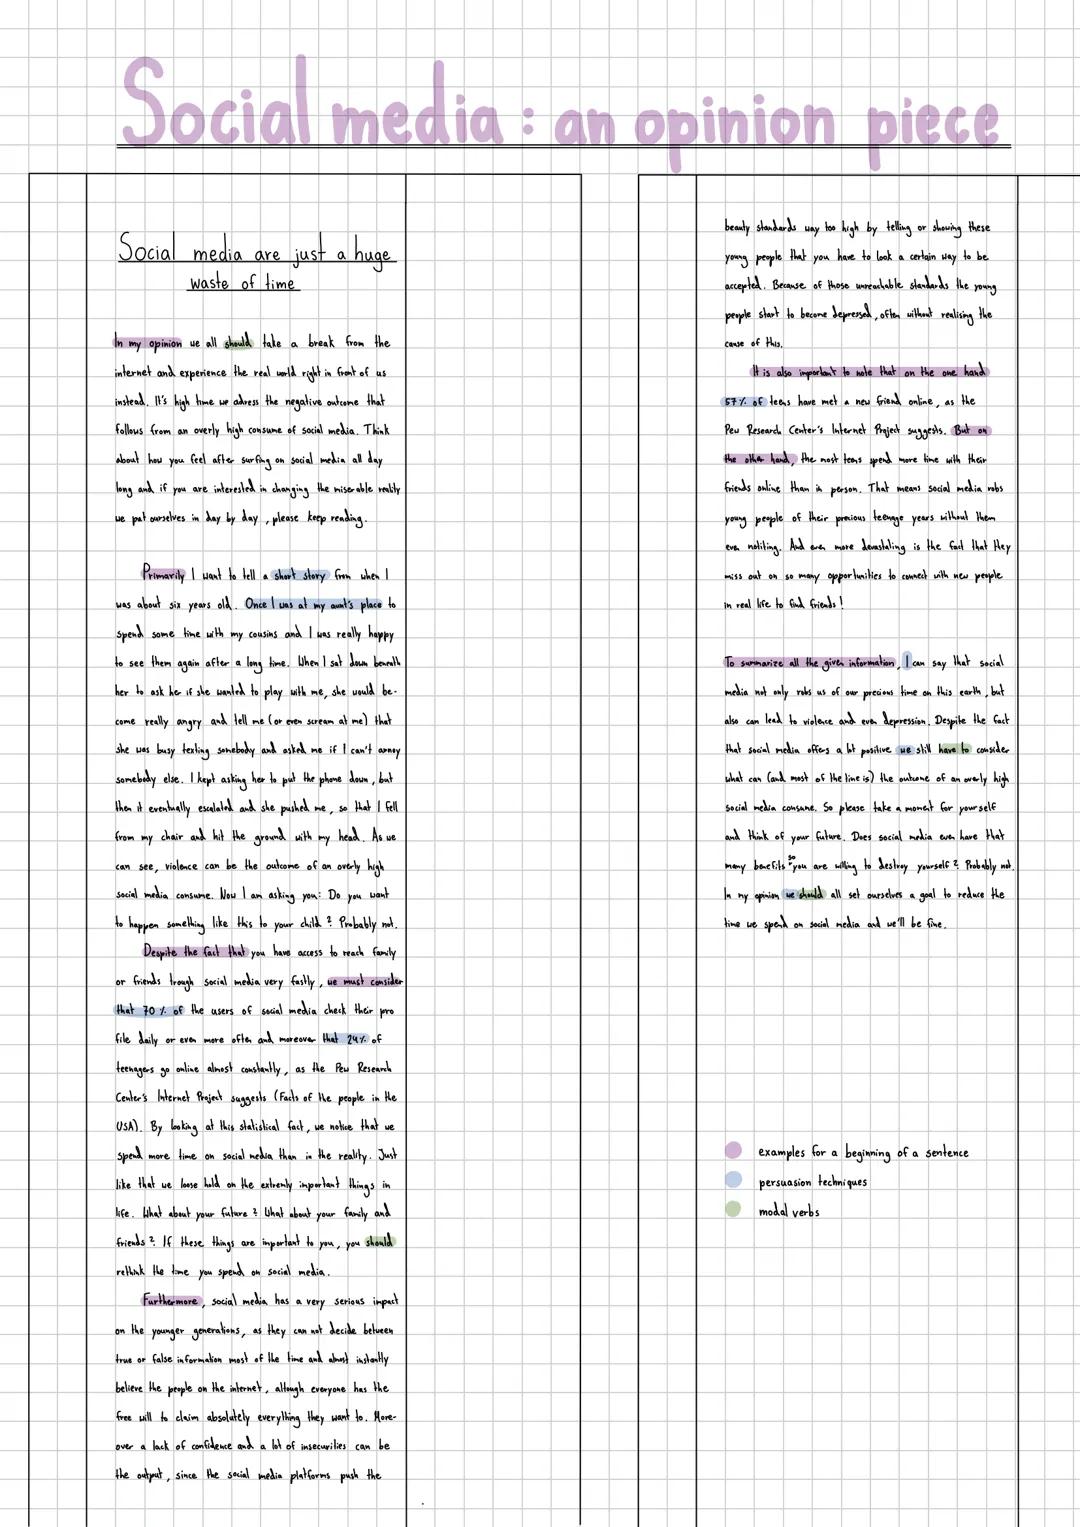 Social media : an opinion piece
Social media are just a huge
waste of time
In my opinion we all should take a break from the
internet and experience the real world right in front of us
instead. It's high time we adress the negative outcome that
follows from an overly high consume of social media. Think
about how you feel after surfing on social media all day
long and if you are interested in changing the miserable reality
we put ourselves in day by day, please keep reading.
Primarily I want to tell a short story from when I
was about six years old. Once I was at my aunt's place to
spend some time with my cousins and I was really happy
to see them again after a long time. When I sat down beneath
her to ask her if she wanted to play with me, she would be-
come really angry and tell me (or even scream at me) that
she was busy texting somebody and asked me if I can't annoy
somebody else. I kept asking her to put the phone down, but
then it eventually escalated and she pushed me, so that I fell
from my chair and hit the ground with my head. As we
can see, violence can be the outcome of an overly high
social media consume. Now I am asking you: Do you want
to happen something like this to your child? Probably not.
Despite the fact that you have access to reach family
or friends trough social media very fastly, we must consider
that 70% of the users of social media check their pro
file daily or even more often and moreover that 24% of
teenagers go online almost constantly, as the Pew Research
Center's Internet Project suggests (Facts of the people in the
USA). By looking at this statistical fact, we notice that we
spend more time on social media than in the reality. Just
like that we loose hold on the extremly important things in
life. What about your future? What about your family and
friends? If these things are important to you, you should
rethink the time you spend on social media.
Furthermore, social media has a very serious impact
on the younger generations, as they can not decide between
true or false information most of the time and almost instantly
believe the people on the internet, altough everyone has the
free will to claim absolutely everything they want to. More-
over a lack of confidence and a lot of insecurities can be
the output, since the social media platforms push the
beauty standards way too high by telling or showing these
young people that you have to look a certain way to be
accepted. Because of those unreachable standards the young
people start to become depressed, often without realising the
cause of this.
It is also important to note that on the one hand
57% of teens have met a new friend online, as the
Pew Research Center's Internet Project suggests. But on
the other hand, the most teens spend more time with their
friends online than in person. That means social media robs
young people of their precious teenage years without them
even notiting. And even more devastating is the fact that they
miss out on so many opportunities to connect with new people
in real life to find friends!
To summarize all the given information, I can say that social
media not only robs us of our precious time on this earth, but
also can lead to violence and even depression. Despite the fact
that social media offers a lot positive we still have to consider
what can (and most of the time is) the outcome of an overly high
social media consume. So please take a moment for yourself
and think of your future. Does social media even have that
many benefits so you are willing to destroy yourself? Probably not.
In my opinion we should all set ourselves a goal to reduce the
time we spend on social media and we'll be fine.
examples for a beginning of a sentence
persuasion techniques
modal verbs